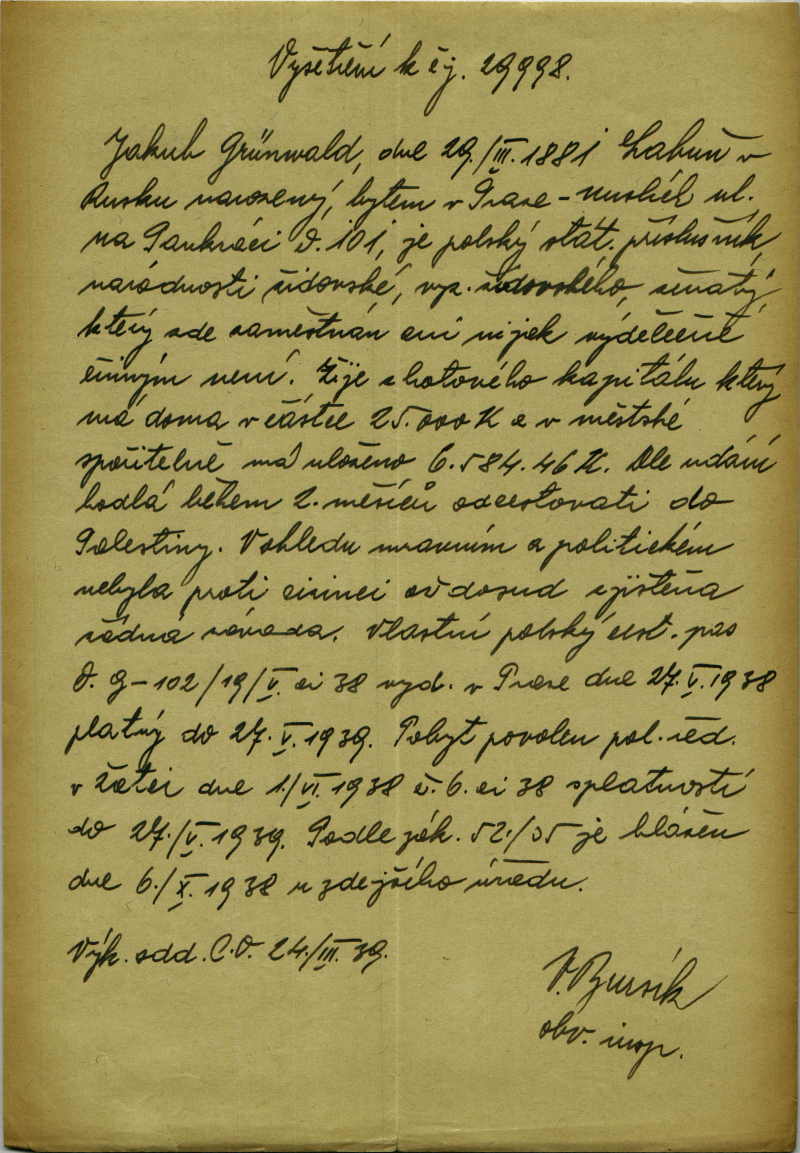 Vyšetření k čj. 29998.
Jakub Grünwald, dne 29./III. 1881 Labuň v
Rusku narozený, bytem v Praze - Nuslích ul.
na Pankráci č. 101, je polský stát. příslušník,
národnosti židovské, vyz. židovského, ženatý,
který zde zaměstnán ani nijak výdělečně
činným není. Žije z hotového kapitálu který
má doma v částce 25.000 K a v městské
spořitelně má uloženo 6.584.46 K. Dle udání
hodlá během 2. měsíců odcestovati do
Palestiny. V ohledu mravním a politickém
nebyla proti cizinci až dosud zjištěna
žádná závada. Vlastní polský cest. pas
č. 9-102/19/V. ci 38 vyd. v Praze dne 27. V. 1938
platný do 27. V. 1939. Pobyt povolen pol. řed.
v Žatci dne 1./VI. 1938 č. 6. ci 38 s platností
do 27./V. 1939. Podle zák. 52./35 je hlášen
dne 6./X. 1938 u zdejšího úřadu.
Výk. odd. C.O. 24./III. 39.
V. Bursík
obv. insp.